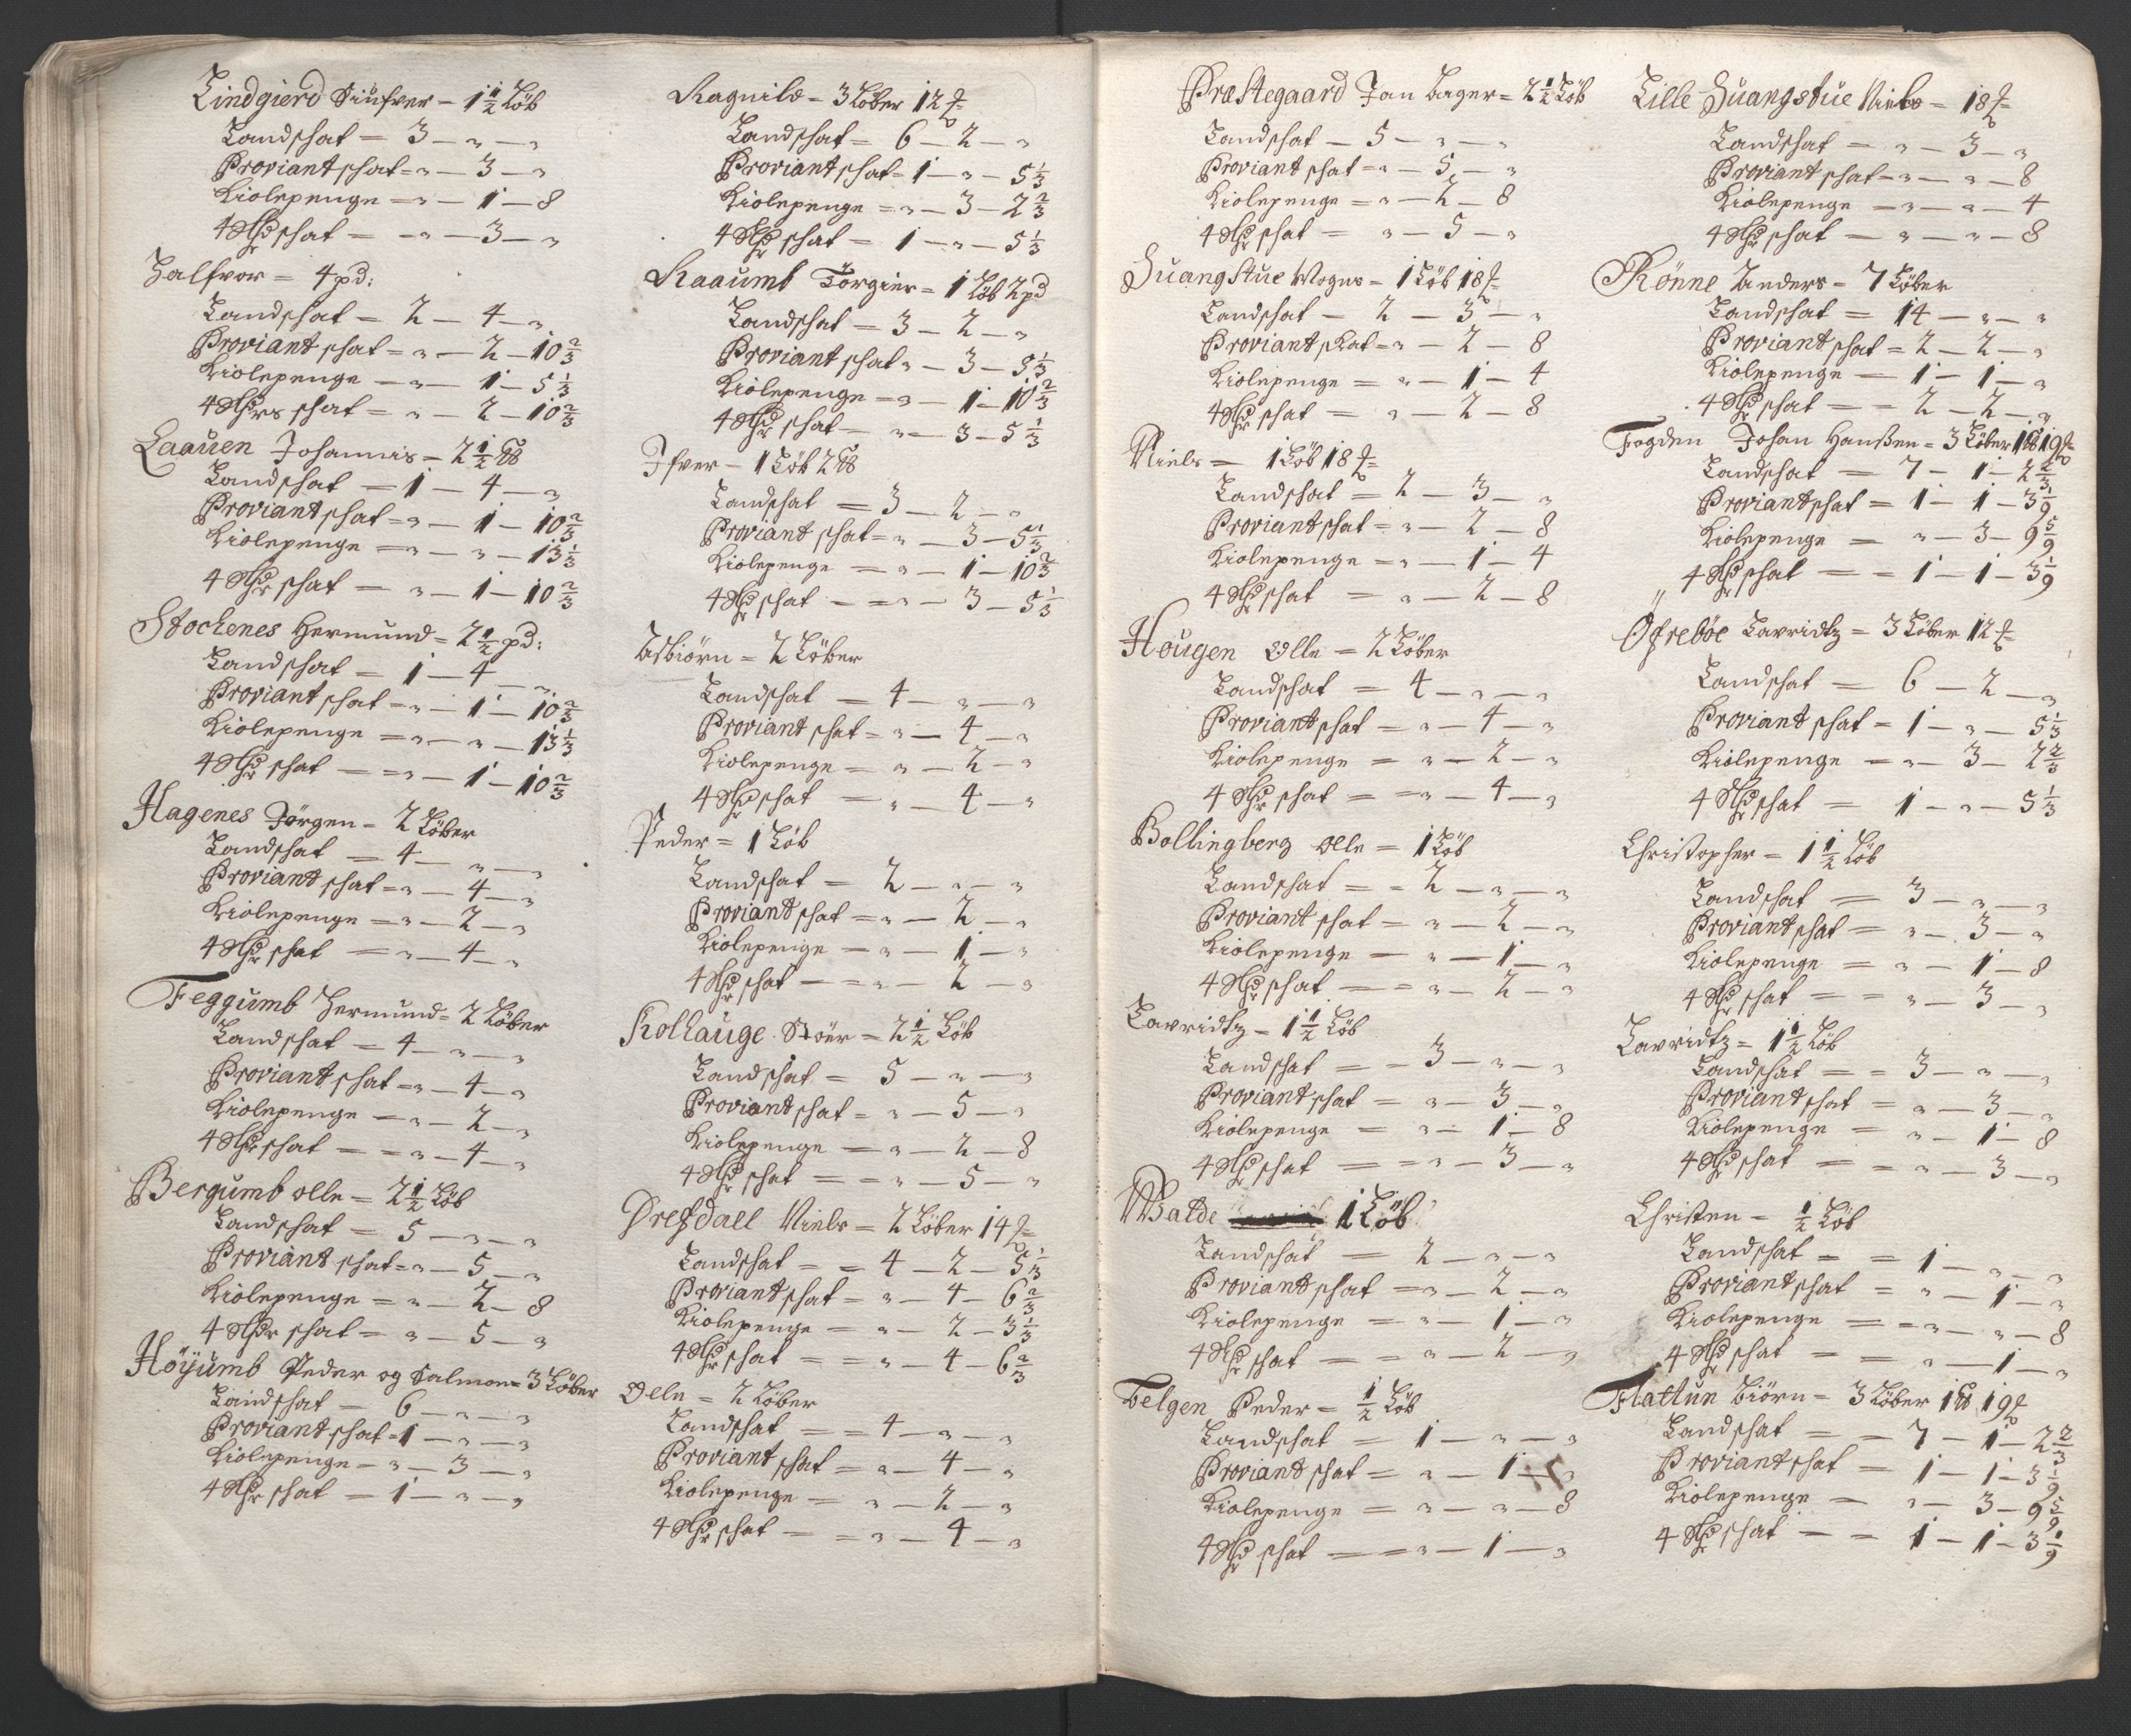 Lindgierd Siufver – 1 1/2 Löb
Landschat = 3 – „ – „
Proviantschat = „ – 3 – „
Kiolepenge = „ – 1 – 8
4 Rhdr schat = – „ – 3 – „
Halfvor = 4 pd:
Landschat = 2 – 4 – „
Proviantschat = „ – 2 – 10 2/3
Kiolepenge – „ – 1 – 5 1/3
4 Rhdrs schat = „ – 2 – 10 2/3
Laauen Johannis – 2 1/2 ℔
Landschat = 1 – 4 – „
Proviantschat = „ – 1 – 10 2/3
Kiolepenge = „ – „ – 13 1/3
4 Rhdr schat = „ – 1 – 10 2/3
Stochenes Hermund = 2 1/2 pd:
Landschat = 1 – 4 – „
Proviantschat = „ – 1 – 10 2/3
Kiolepenge = „ – „ – 13 1/3
4 Rhdr schat = = „ – 1 – 10 2/3
Hagenes Jörgen – 2 Löber
Landschat = 4 – „ – „
Proviantschat = „ – 4 – „
Kiolepenge = „ – 2 – „
4 Rhdr schat = „ – 4 – „
Feggumb Hermund = 2 Löber
Landschat = 4 – „ – „
Proviantschat = „ – 4 – „
Kiolepenge = „ – 2 – „
4 Rhdr schat = = „ – 4 – „
Bergumb olle = 2 1/2 Löb
Landschat = 5 – „ – „
Proviantschat = „ – 5 – „
Kiolepenge = „ – 2 – 8
4 Rhdr schat = „ – 5 – „
Höÿumb Peder og Salmon = 3 Löber
Landschat = 6 – „ – „
Proviantschat = 1 – „ – „
Kiolepenge = „ – 3 – „
4 Rhdr schat = 1 – „ – „
Ragnild – 3 Löber 12 ₰
Landschat = 6 – 2 – „
Proviantschat = 1 – „ – 5 1/3
Kiolepenge = „ – 3 – 2 2/3
4 Rhdr schat = 1 – „ – 5 1/3
Raaumb Torgier = 1 Löb 2 pd
Landschat = 3 – 2 – „
Proviantschat „ – 3 – 5 1/3
Kiolepenge = „ – 1 – 10 2/3
4 Rhdr schat – „ – 3 – 5 1/3
Ifver – 1 Löb 2 ℔
Landschat = 3 – 2 – „
Proviantschat = „ – 3 – 5 1/3
Kiolepenge = „ – 1 – 10 2/3
4 Rhdr schat – = „ – 3 – 5 1/3
Asbiörn = 2 Löber
Landschat = 4 – „ – „
Proviantschat = „ – 4 – „
Kiolepenge = „ – 2 – „
4 Rhdr schat = „ – 4 – „
Peder = 1 Löb
Landschat = 2 – „ – „
Proviantschat = „ – 2 – „
Kiolepenge = „ – 1 – „
4 Rhdr schat – = „ – 2 – „
Kollauge Stöer = 2 1/2 Löb
Landschat = 5 – „ – „
Proviantschat = „ – 5 – „
Kiolepenge = „ – 2 – 8
4 Rhdr schat = = „ – 5 – „
Drefsdall Niels = 2 Löber 14 ₰
Landschat = = 4 – 2 – 5 1/3
Proviantschat = „ – 4 – 6 2/3
Kiolepenge = „ – 2 – 3 1/3
4 Rhdr schat = = „ – 4 – 6 2/3
Oelle = 2 Löber
Landschat = = 4 – „ – „
Proviantschat = „ – 4 – „
Kiolepenge = „ – 2 – „
4 Rhdr schat = = „ – 4 – „
Præstegaard Jan Lager = 2 1/2 Löb
Landschat – 5 – „ – „
Proviantschat = „ – 5 – „
Kiolepenge = „ – 2 – 8
4 Rhdr schat = „ – 5 – „
Suangstue Mogns – 1 Löb 18 ₰
Landschat – 2 – 3 – „
Proviantskat = „ – 2 – 8
Kiolepenge = „ – 1 – 4
4 Rhdr schat = „ – 2 – 8
Niels = 1 Löb 18 ₰
Landschat = 2 – 3 – „
Proviantschat = „ – 2 – 8
Kiolepenge = „ – 1 – 4
4 Rhdr schat = „ – 2 – 8
Hougen Olle = 2 Löber
Landschat = 4 – „ – „
Proviantschat = „ – 4 – „
Kiolepenge = „ – 2 – „
4 Rhdr schat = = „ – 4 – „
Bollingberg olle = 1 Löb
Landschat = = 2 – „ – „
Proviantschat = „ – 2 – „
Kiolepenge = „ – 1 – „
4 Rhdr schat = = „ – 2 – „
Lavridtz – 1 1/2 Löb
Landschat = = 3 – „ – „
Proviantschat = „ – 3 – „
Kiolepenge = „ – 1 – 8
4 Rhdr schat = = „ – 3 – „
Walde 1 Löb
Landschat = 2 – „ – „
Proviantschat = „ – 2 – „
Kiolepenge = „ – 1 – „
4 Rhdr schat = = „ – 2 – „
Felgen Peder = 1/2 Löb
Landschat = 1 – „ – „
Proviantschat = „ – 1 – „
Kiolepenge = „ – „ – 8
4 Rhdr schat = = „ – 1 – „
Lille Suangstue Niels = 18 ₰
Landschat = „ – 3 – „
Proviantschat = „ – „ – 8
Kiolepenge = „ – „ – 4
4 Rhdr schat – „ – „ – 8
Rönne Anders – 7 Löber
Landschat = 14 – „ – „
Proviantschat = 2 – 2 – „
Kiolepenge = 1 – 1 – „
4 Rhdr schat = = 2 – 2 – „
Fogden Johan Hanßen = 3 Löber 1 ℔ 19 ₰
Landschat = 7 – 1 – 2 2/3
Proviantschat = 1 – 1 – 3 1/9
Kiolepenge = „ – 3 – 9 5/9
4 Rhdr schat = = 1 – 1 – 3 1/9
Öfreböe Lavridtz = 3 Löber 12 ₰
Landschat = 6 – 2 – „
Proviantschat = 1 – „ – 5 1/3
Kiolepenge = „ – 3 – 2 2/3
4 Rhdr schat = 1 – „ – 5 1/3
Christopher = 1 1/2 Löb
Landschat = 3 – „ – „
Proviantschat = „ – 3 – „
Kiolepenge = „ – 1 – 8
4 Rhdr schat = = „ – 3 – „
Lavridtz = 1 1/2 Löb
Landschat = = 3 – „ – „
Proviantschat = „ – 3 – „
Kiolepenge = „ – 1 – 8
4 Rhdr schat = = „ – 3 – „
Christen = 1/2 Löb
Landschat = = 1 – „ – „
Proviantschat = „ – 1 – „
Kiolepenge = = „ – „ – 8
4 Rhdr schat = = „ – 1 – „
Flattun Biörn = 3 Löber 1 ℔ 19 ₰
Landschat = = 7 – 1 – 2 2/3
Proviantschat = 1 – 1 – 3 1/9
Kiolepenge = „ – 3 – 9 5/9
4 Rhdr schat = = 1 – 1 – 3 1/9